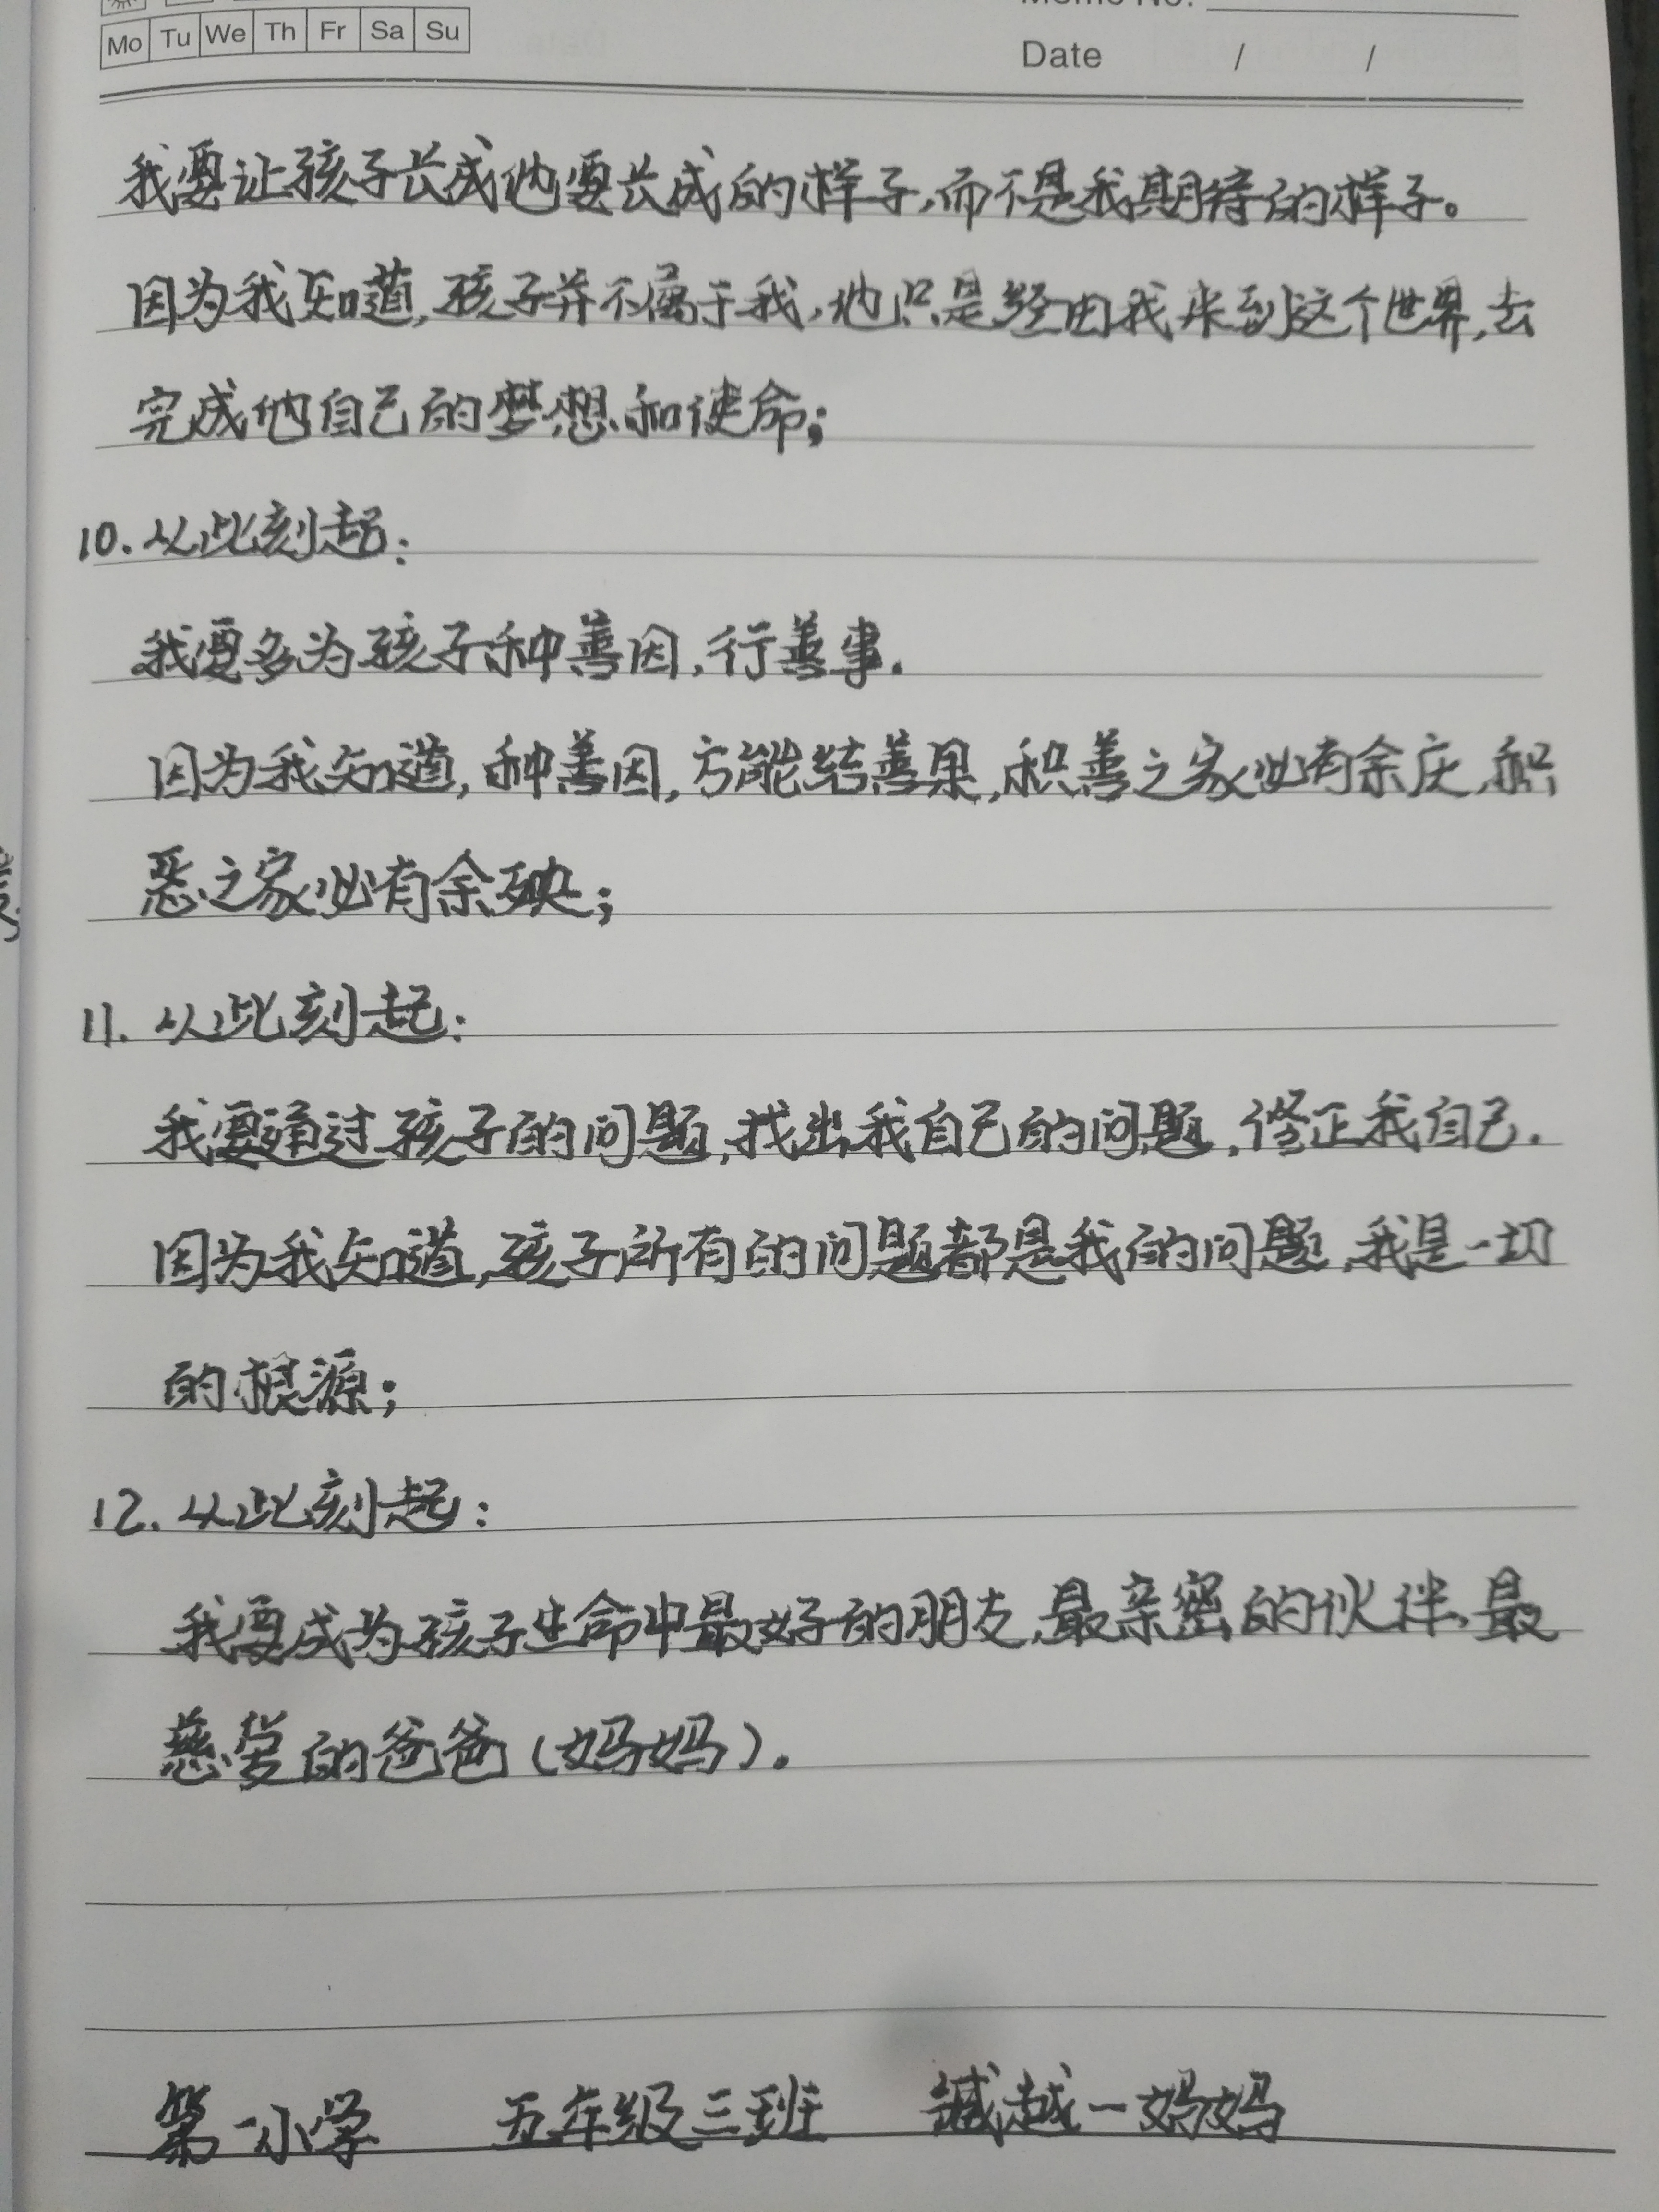 Mo Tu We Th Fr Sa Su
Memo No.
Date / /
我要让孩子长成他要长成的样子,而不是我期待的样子。
因为我知道,孩子并不属于我,他只是经由我来到这个世界,去
完成他自己的梦想和使命;
10.从此刻起:
我要多为孩子种善因,行善事.
因为我知道,种善因,方能结善果,积善之家必有余庆,积
恶之家必有余殃;
11.从此刻起:
我要通过孩子的问题,找出我自己的问题,修正我自己.
因为我知道,孩子所有的问题都是我的问题,我是一切
的根源;
12.从此刻起:
我要成为孩子生命中最好的朋友,最亲密的伙伴,最
慈爱的爸爸(妈妈).
第一小学 五年级三班 越一妈妈